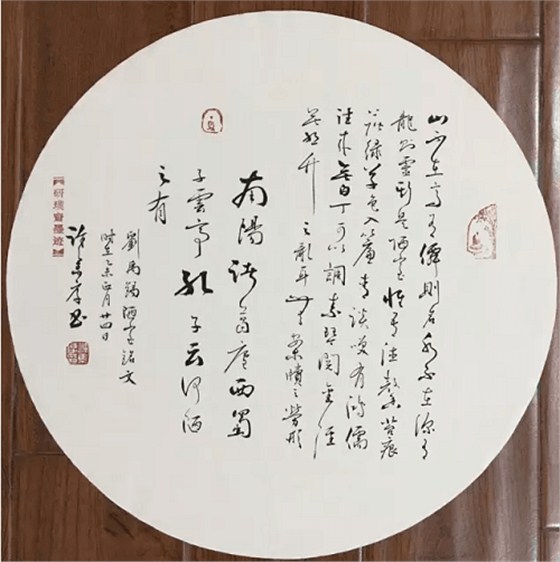 山不在高有僊則名水不在深有
龍則靈斯是陋室惟吾德馨苔痕
綠草色入簾青談笑有鴻儒
往來無白丁可以調素琴閱金經
無絲竹之亂耳無案牘之勞形
南陽諸葛廬西蜀
子雲亭孔子云何陋
之有
劉禹錫陋室銘文
時在乙未正月廿四日